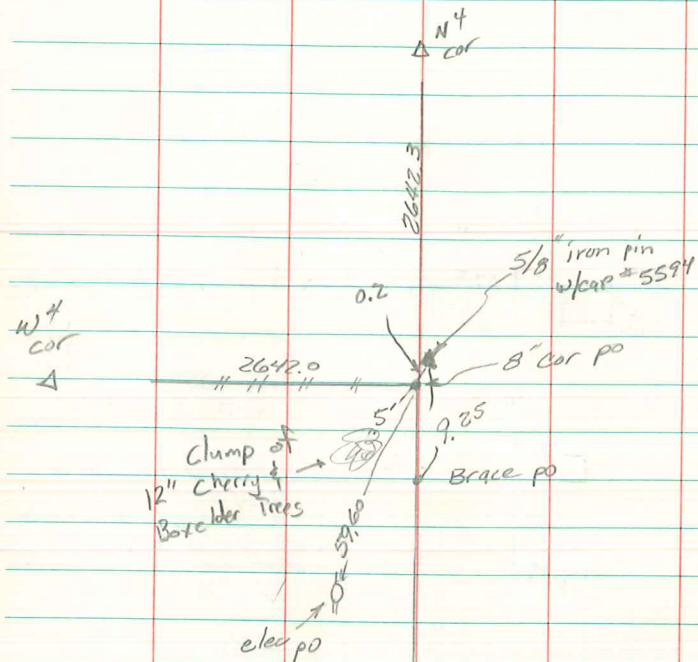 N 4
cor
2642.3
5/8" iron pin
w/cap #5594
0.2
W 4
cor
2642.0
8" cor po
5'
9.25
Clump of
12" Cherry &
Boxelder Trees
Brace po
59.60
elec po